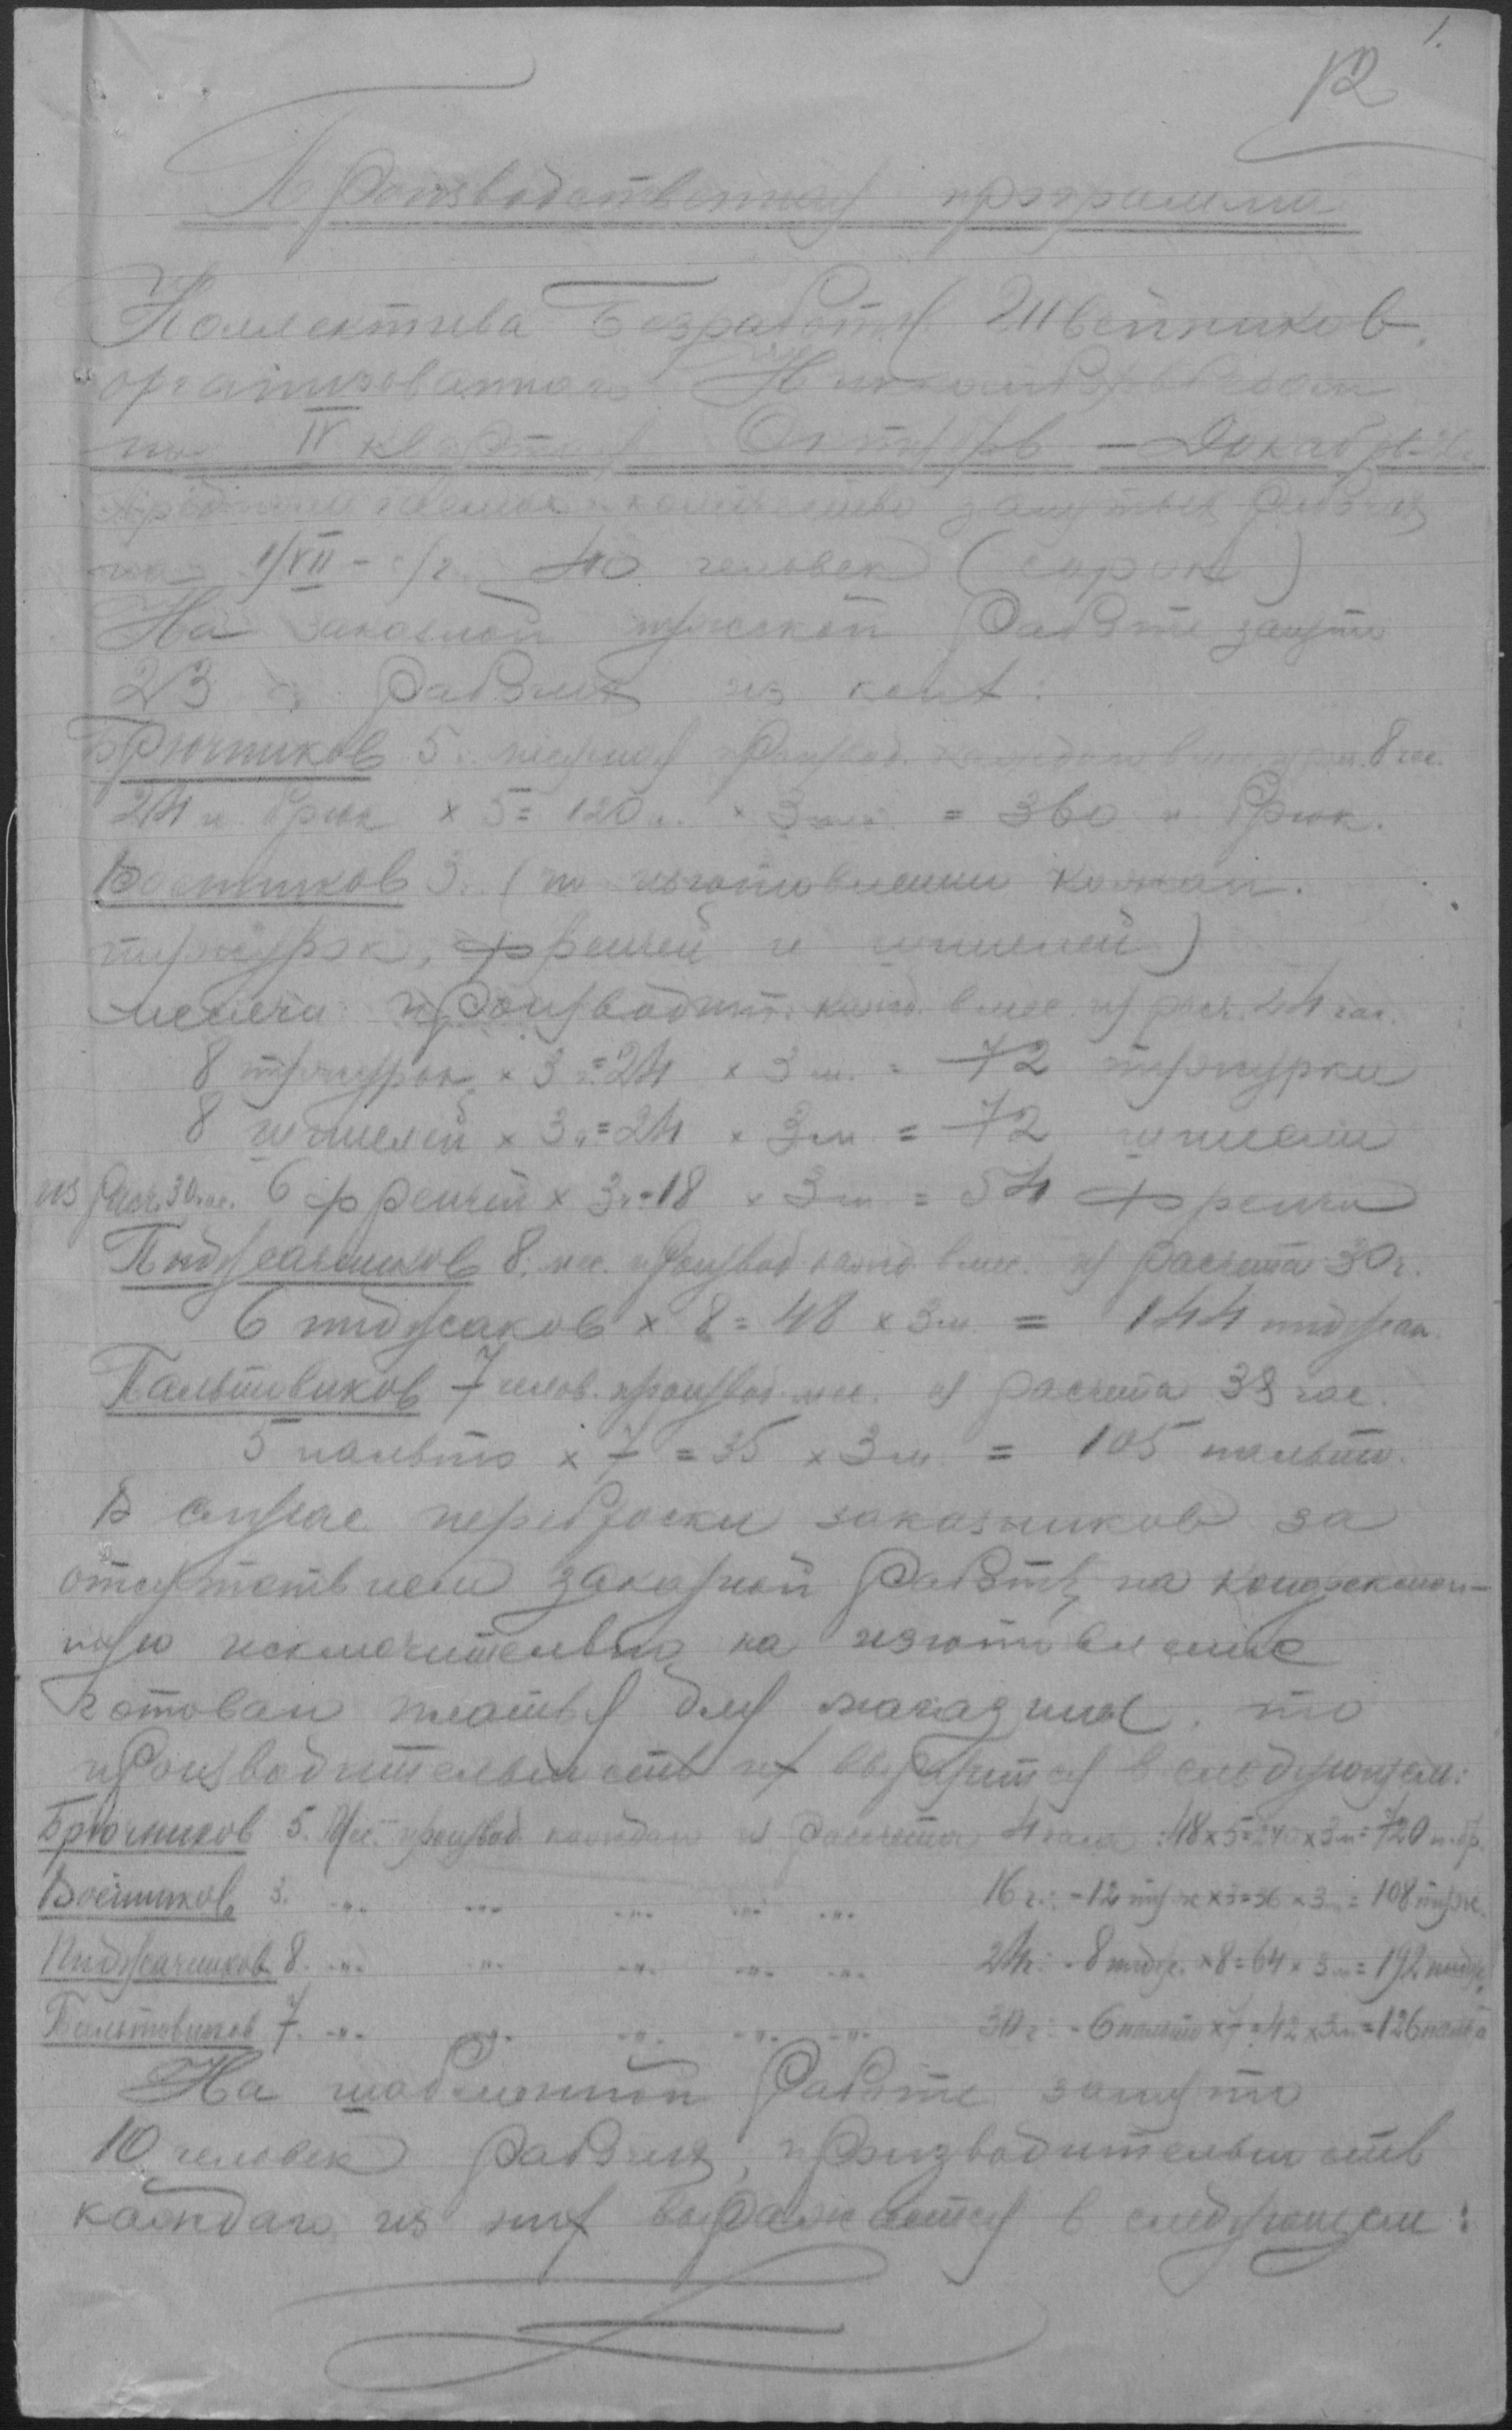 1.
12
Производственная программа
Коллектива Безработн. Швейников
организованного
на IV квартал Октябрь — Декабрь
количество занятых рабочих
на 1/VII - с/г. 40 человек (сорок)
На заказной мужской работе занято
23 рабочих из коих:
Брючников 5. производ. каждого в 8 час.
24 п. брюк × 5 = 120 п. × 3 = 360 п. брюк.
Военников 3. (по изготовлению кожан.
тужурок, френчей и шинелей)
месячн. производит. кажд. в мес. из расч. 24 час.
8 тужурок × 3 = 24 × 3 м. = 72 тужурки
8 шинелей × 3 = 24 × 3 м. = 72 шинели
из расч. 30 час. 6 френчей × 3 = 18 × 3 м. = 54 френча
Пиджачников 8. мес. производ. кажд. в мес. из расчета 30 ч.
6 пиджаков × 8 = 48 × 3 м. = 144 пиджак.
Пальтовиков 7 челов. производ. мес. из расчета 38 час.
5 пальто × 7 = 35 × 3 м. = 105 пальто.
В случае переброски заказников за
отсутствием заказной работы на конфекцион-
ную исключительно на изготовление
готовам платья для магазина, то
производительность их выразится в следующем:
Брючников 5. Мес. производ. каждого из расчета 4 часа: 48×5=240×3 м=720 п. бр.
Военников 3. -"- -"- -"- -"- -"- 16 ч.: - 12 туж ×3=36 × 3 м = 108 туж.
Пиджачников 8. -"- -"- -"- -"- -"- 24 ч: - 8 пидж. ×8=64 × 3 м = 192 пидж.
Пальтовиков 7. -"- -"- -"- -"- -"- 30 ч: - 6 пальто ×7=42 × 3 м = 126 пальто
На шаблонной работе занято
10 человек рабочих, производительность
каждаго из них выражается в следующем: